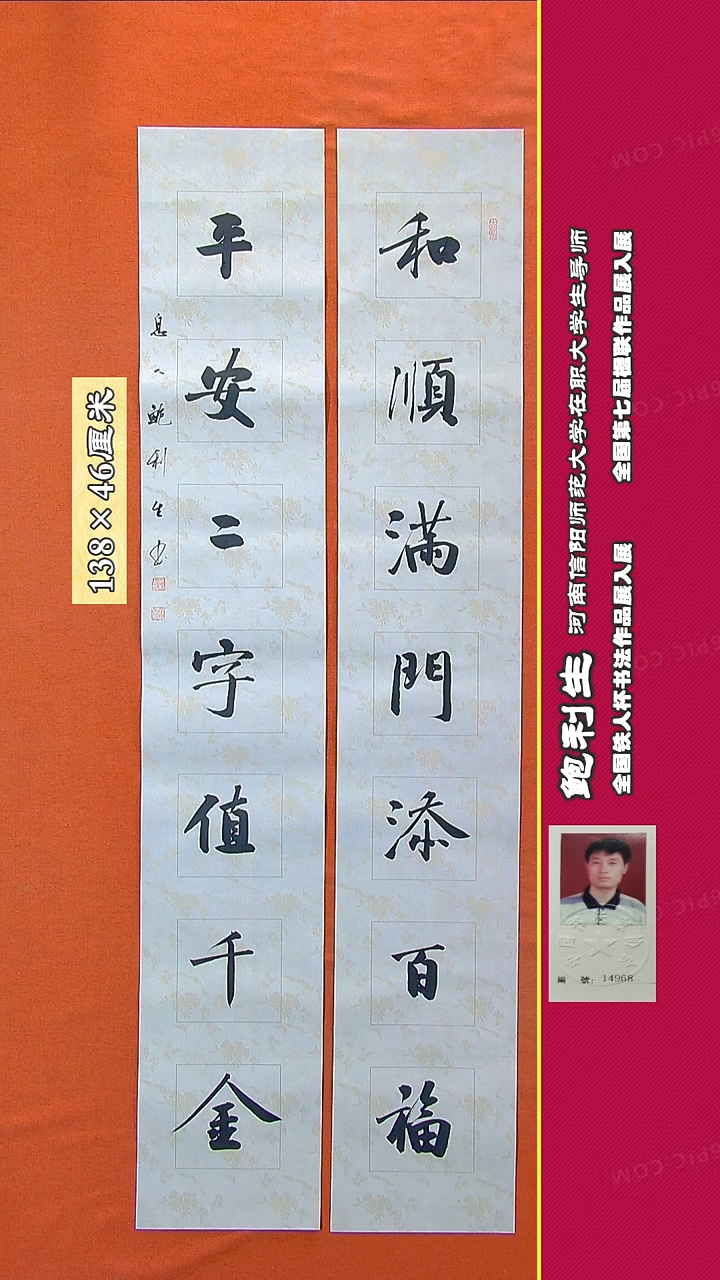 和順滿門添百福
平安二字值千金
息人鲍利生书
138×46厘米
鲍利生 河南信阳师范大学在职大学生导师
全国铁人杯书法作品展入展 全国第七届楹联作品展入展
編 號: 14968